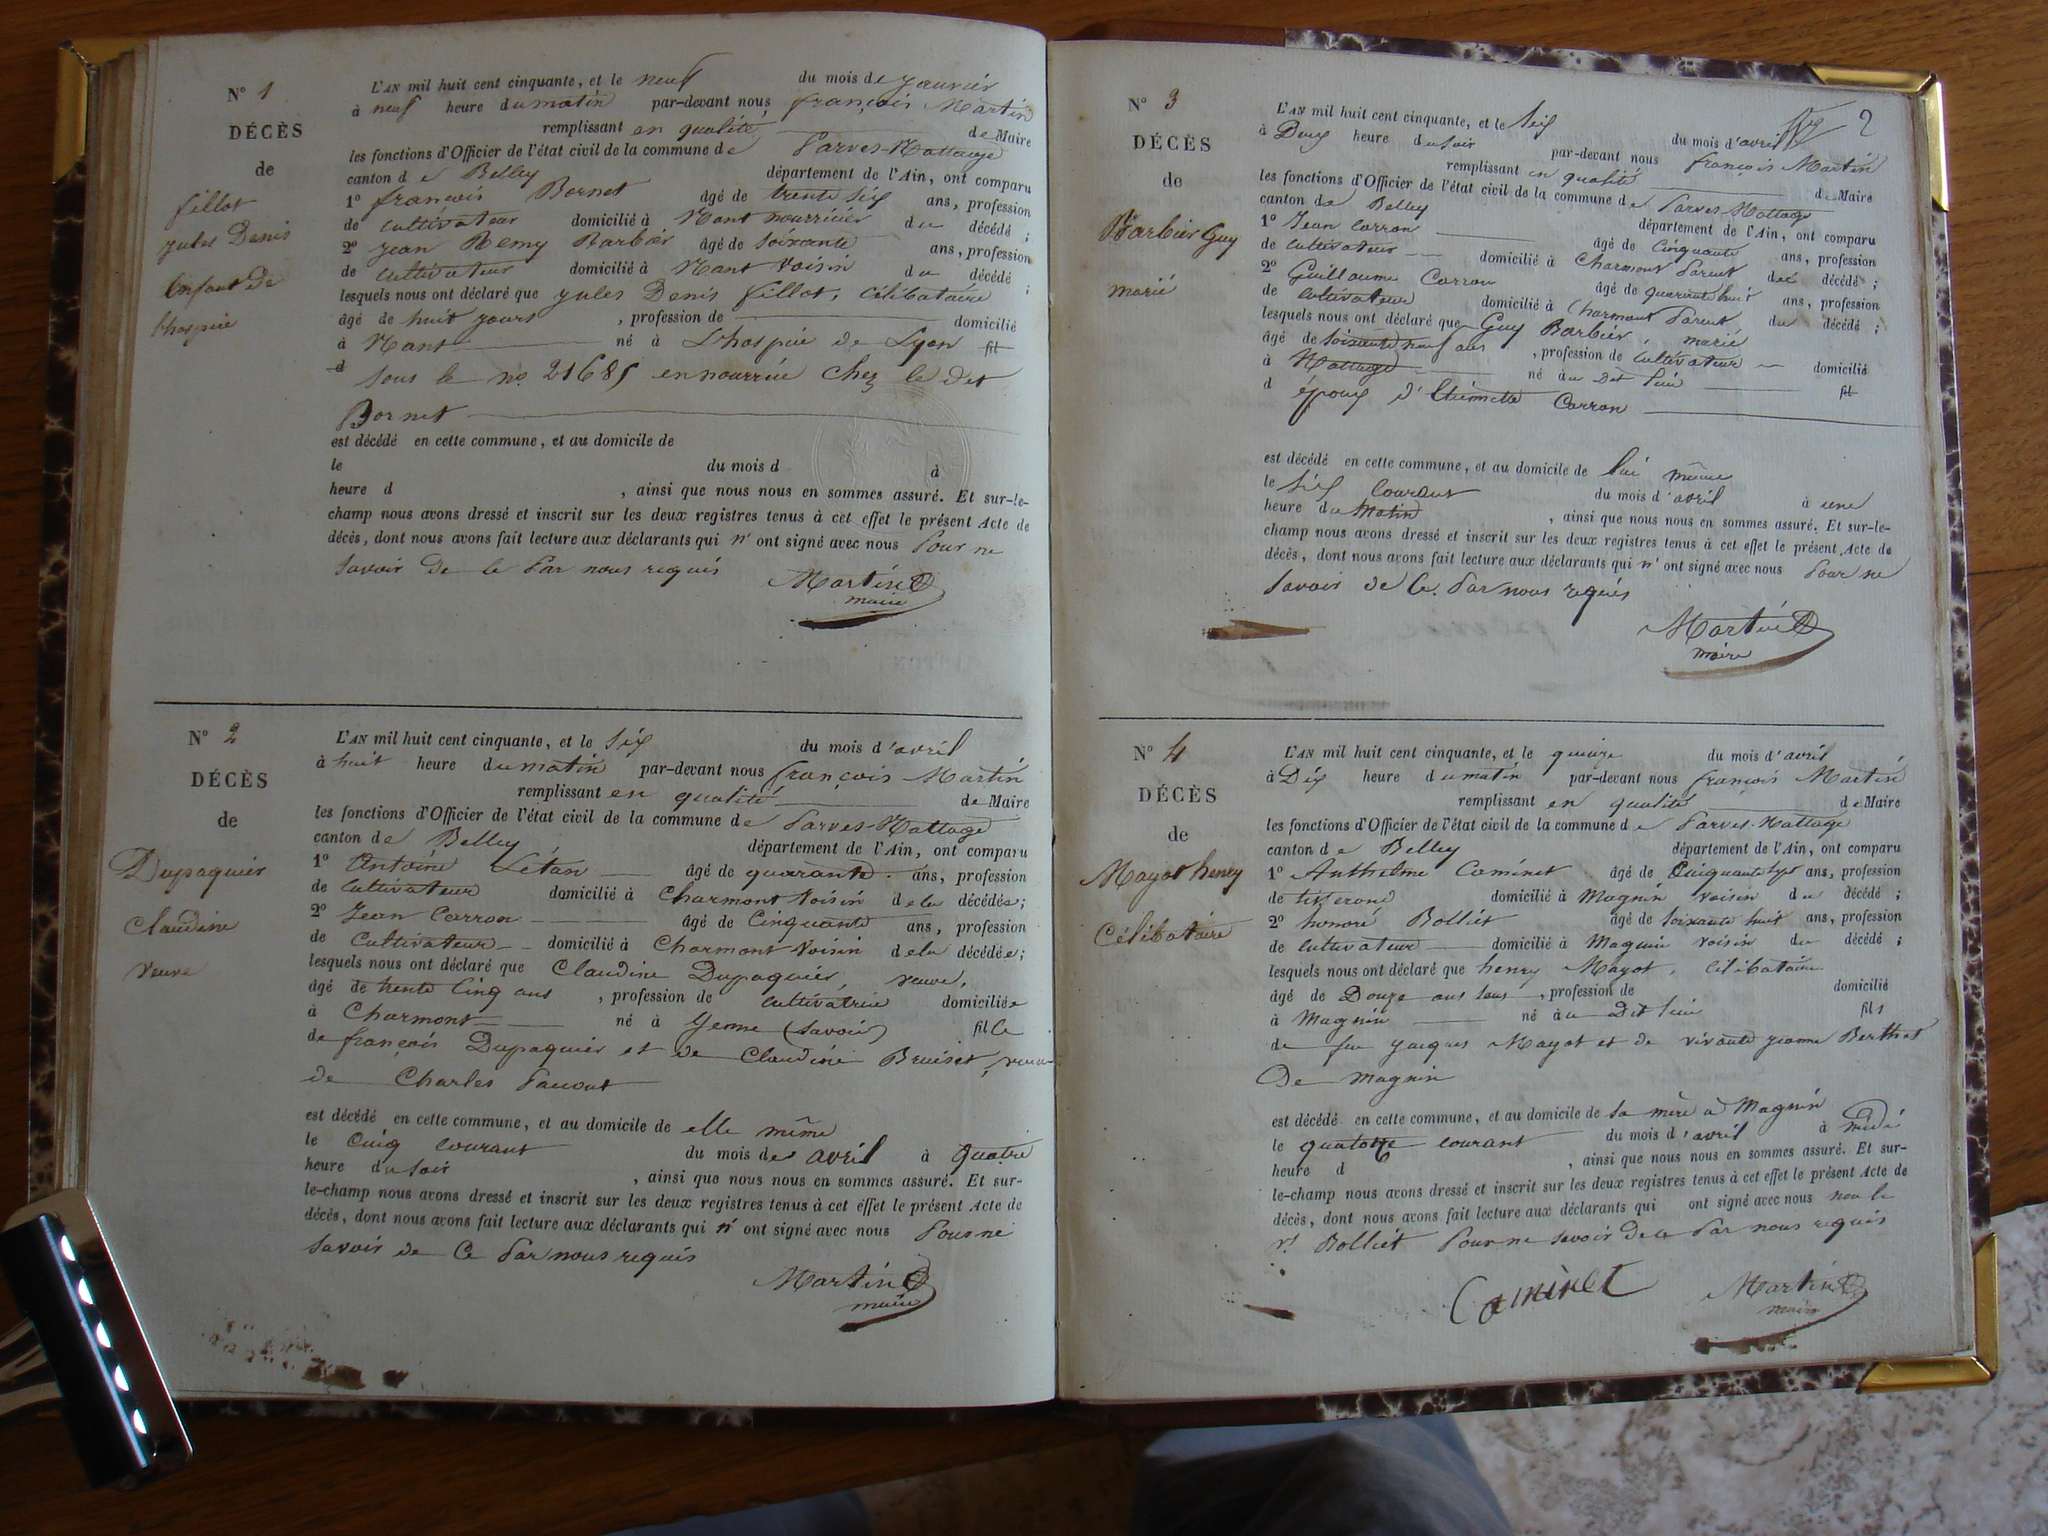 N° 1
DÉCÈS
de
fillot
jules Denis
Enfant de
l'hospice
L'AN mil huit cent cinquante, et le neuf du mois de janvier
à neuf heure du matin par-devant nous françois Martin
remplissant en qualité de Maire
les fonctions d'Officier de l'état civil de la commune de Parves-Nattage
canton de Belley département de l'Ain, ont comparu
1° françois Bornet âgé de trente six ans, profession
de cultivateur domicilié à Nant nourricier du décédé ;
2° jean Remy Barbier âgé de soixante ans, profession
de cultivateur domicilié à Nant voisin du décédé ;
lesquels nous ont déclaré que jules Denis fillot, célibataire
âgé de huit jours , profession de domicilié
à Nant né à L'hospice de Lyon fil
d sous le no 21685 en nourrice chez le dit
Bornet
est décédé en cette commune, et au domicile de
le du mois d à
heure d , ainsi que nous nous en sommes assuré. Et sur-le-
champ nous avons dressé et inscrit sur les deux registres tenus à cet effet le présent Acte de
décès, dont nous avons fait lecture aux déclarants qui n' ont signé avec nous Pour ne
savoir de ce Par nous requis
Martin
maire
N° 2
DÉCÈS
de
Dupaquier
Claudine
veuve
L'AN mil huit cent cinquante, et le six du mois d'avril
à huit heure du matin par-devant nous françois Martin
remplissant en qualité de Maire
les fonctions d'Officier de l'état civil de la commune de Parves-Nattage
canton de Belley département de l'Ain, ont comparu
1° Antoine Létan âgé de quarante ans, profession
de cultivateur domicilié à Charmont voisin de la décédée;
2° Jean Carron âgé de Cinquante ans, profession
de Cultivateur domicilié à Charmont voisin de la décédée;
lesquels nous ont déclaré que Claudine Dupaquier, veuve,
âgé de trente Cinq ans , profession de cultivatrice domiciliée
à Charmont né à Yenne (savoie) fille
de françois Dupaquier et de Claudine Bruiset, veuve
de Charles
est décédé en cette commune, et au domicile de elle même
le Cinq courant du mois de avril à Quatre
heure du soir , ainsi que nous nous en sommes assuré. Et sur-
le-champ nous avons dressé et inscrit sur les deux registres tenus à cet effet le présent Acte de
décès, dont nous avons fait lecture aux déclarants qui n' ont signé avec nous Pour ne
savoir de Ce Par nous requis
Martin
maire
2
N° 3
DÉCÈS
de
Barbier Guy
marié
L'AN mil huit cent cinquante, et le six du mois d'avril
à Deux heure du soir par-devant nous françois Martin
remplissant en qualité de Maire
les fonctions d'Officier de l'état civil de la commune de Parves-Nattage
canton de Belley département de l'Ain, ont comparu
1° Jean Carron âgé de Cinquante ans, profession
de Cultivateur domicilié à Charmont Parent du décédé ;
2° Guillaume Carron âgé de quarante huit ans, profession
de cultivateur domicilié à Charmont Parent du décédé ;
lesquels nous ont déclaré que Guy Barbier, marié
âgé de soixante neuf ans , profession de Cultivateur domicilié
à Nattage né à au Dit lieu fil
d époux d'Etiennette Carron
est décédé en cette commune, et au domicile de lui même
le six courant du mois d'avril à une
heure du matin , ainsi que nous nous en sommes assuré. Et sur-le-
champ nous avons dressé et inscrit sur les deux registres tenus à cet effet le présent Acte de
décès, dont nous avons fait lecture aux déclarants qui n' ont signé avec nous Pour ne
savoir de Ce. Par nous requis
Martin
maire
N° 4
DÉCÈS
de
Mayot henry
Célibataire
L'AN mil huit cent cinquante, et le quinze du mois d'avril
à Dix heure du matin par-devant nous françois Martin
remplissant en qualité de Maire
les fonctions d'Officier de l'état civil de la commune de Parves-Nattage
canton de Belley département de l'Ain, ont comparu
1° Anthelme Caminet âgé de Cinquante sept ans, profession
de tisserand domicilié à Magnin voisin du décédé ;
2° honoré Bolliet âgé de soixante huit ans, profession
de cultivateur domicilié à Magnin voisin du décédé ;
lesquels nous ont déclaré que henry Mayot, célibataire
âgé de Douze ans , profession de domicilié
à Magnin né à au Dit lieu fils
de feu jacques Mayot et de vivante jeanne Berthet
De Magnin
est décédé en cette commune, et au domicile de sa mère à Magnin
le quatorze courant du mois d'avril à midi
heure d , ainsi que nous nous en sommes assuré. Et sur-
le-champ nous avons dressé et inscrit sur les deux registres tenus à cet effet le présent Acte de
décès, dont nous avons fait lecture aux déclarants qui ont signé avec nous non le
Bolliet Pour ne savoir de ce Par nous requis
Caminet Martin
maire